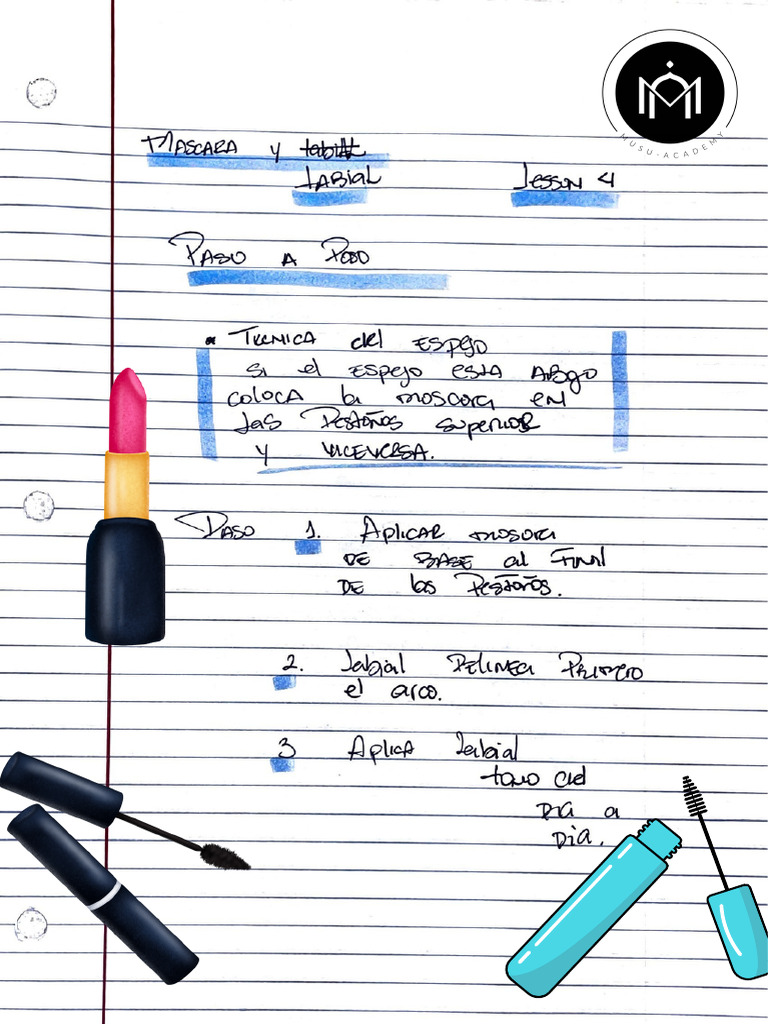 MUSU-ACADEMY
MASCARA y
LABIAL
Lesson 4
PASO A PASO
TECNICA del ESPEJO
si el ESPEJO ESTA ABAJO
COLOCA la mascara en
las PESTAÑAS superior
y VICEVERSA.
PASO 1. APLICAR mascara
DE BASE al FINAL
DE las PESTAÑAS.
2. Labial DELINEA PRIMERO
el arco.
3 APLICA Labial
tono del
DIA a
DIA.